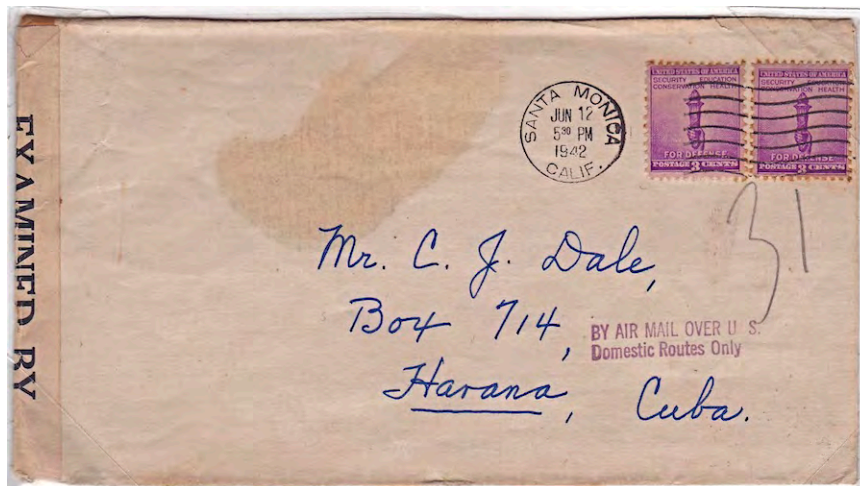 EXAMINED BY
SANTA MONICA
JUN 12
5 30 PM
1942
CALIF.
UNITED STATES OF AMERICA
SECURITY EDUCATION
CONSERVATION HEALTH
FOR DEFENSE
POSTAGE 3 CENTS
UNITED STATES OF AMERICA
SECURITY EDUCATION
CONSERVATION HEALTH
FOR DEFENSE
POSTAGE 3 CENTS
Mr. C. J. Dale,
Box 714,
BY AIR MAIL OVER U S.
Domestic Routes Only
Havana, Cuba.